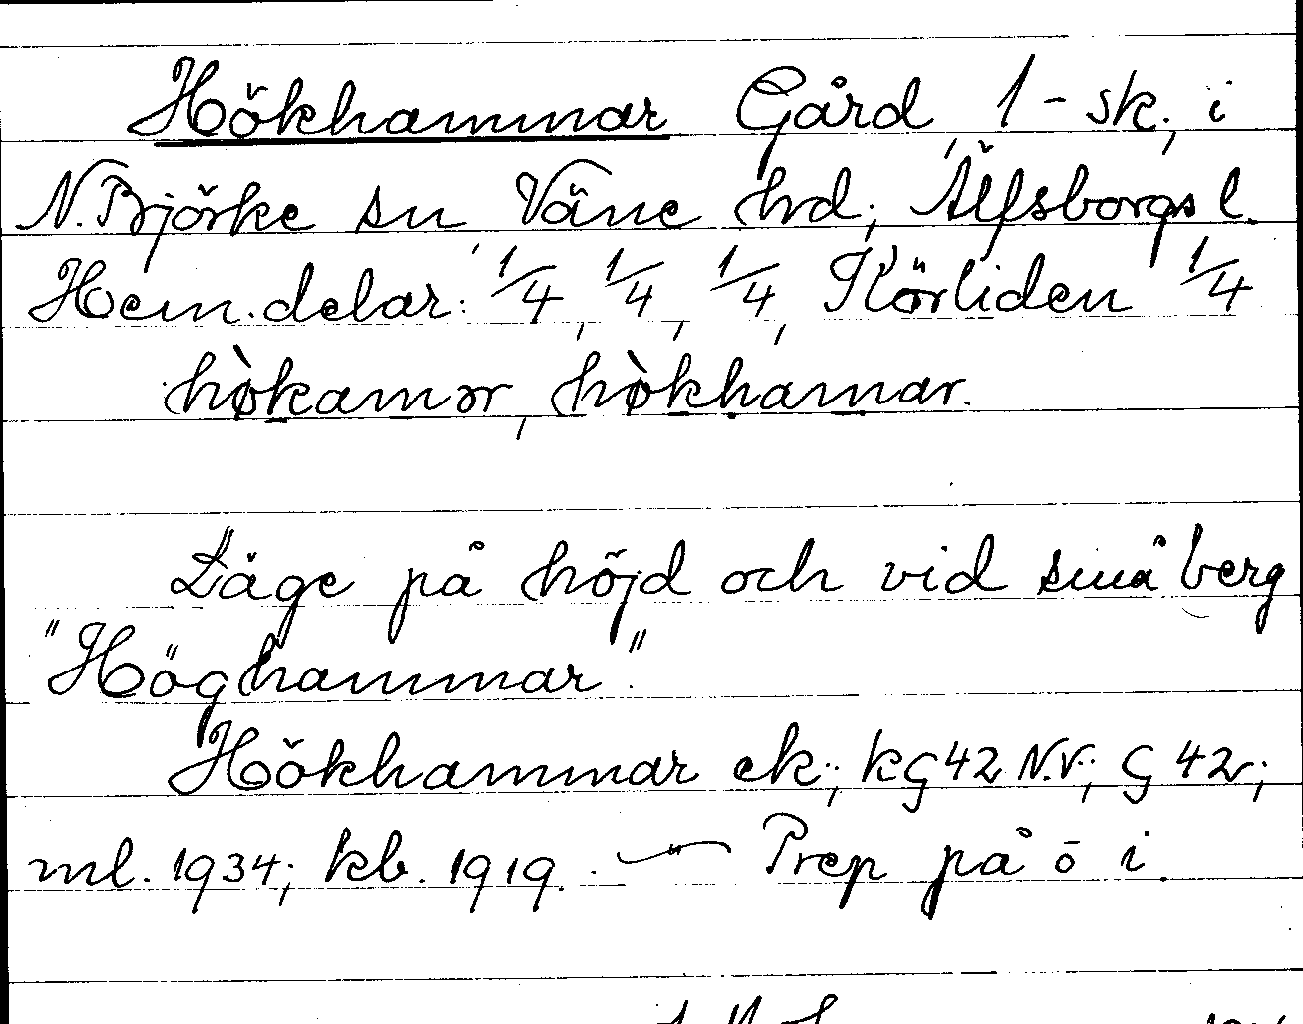 Hökhammar Gård, 1-sk., i
N. Björke sn, Väne hrd, Älfsborgs l.
Hem.delar: 1/4, 1/4, 1/4, Körliden 1/4
hø̀kamər, hø̀khamar.
Läge på höjd och vid små berg
"Höghammar".
Hökhammar ek.; kG 42 N.V; G 42v;
ml. 1934; kb. 1919. — Prep på o i.